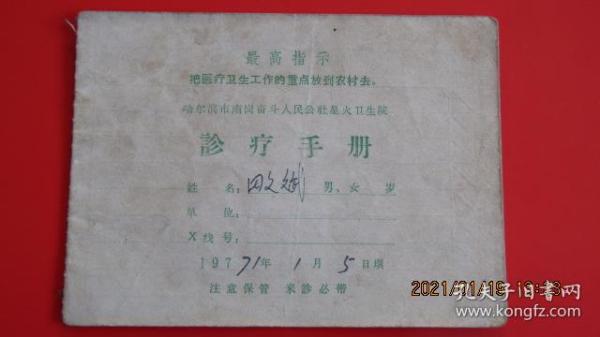 最高指示
把医疗卫生工作的重点放到农村去。
哈尔滨市南岗奋斗人民公社星火卫生院
診疗手册
姓名：田文斌 男、女 岁
单位：
X线号：
197 71年 1月 5日填
注意保管 来診必带
2021/01/19
孔夫子旧书网
kongfz.com